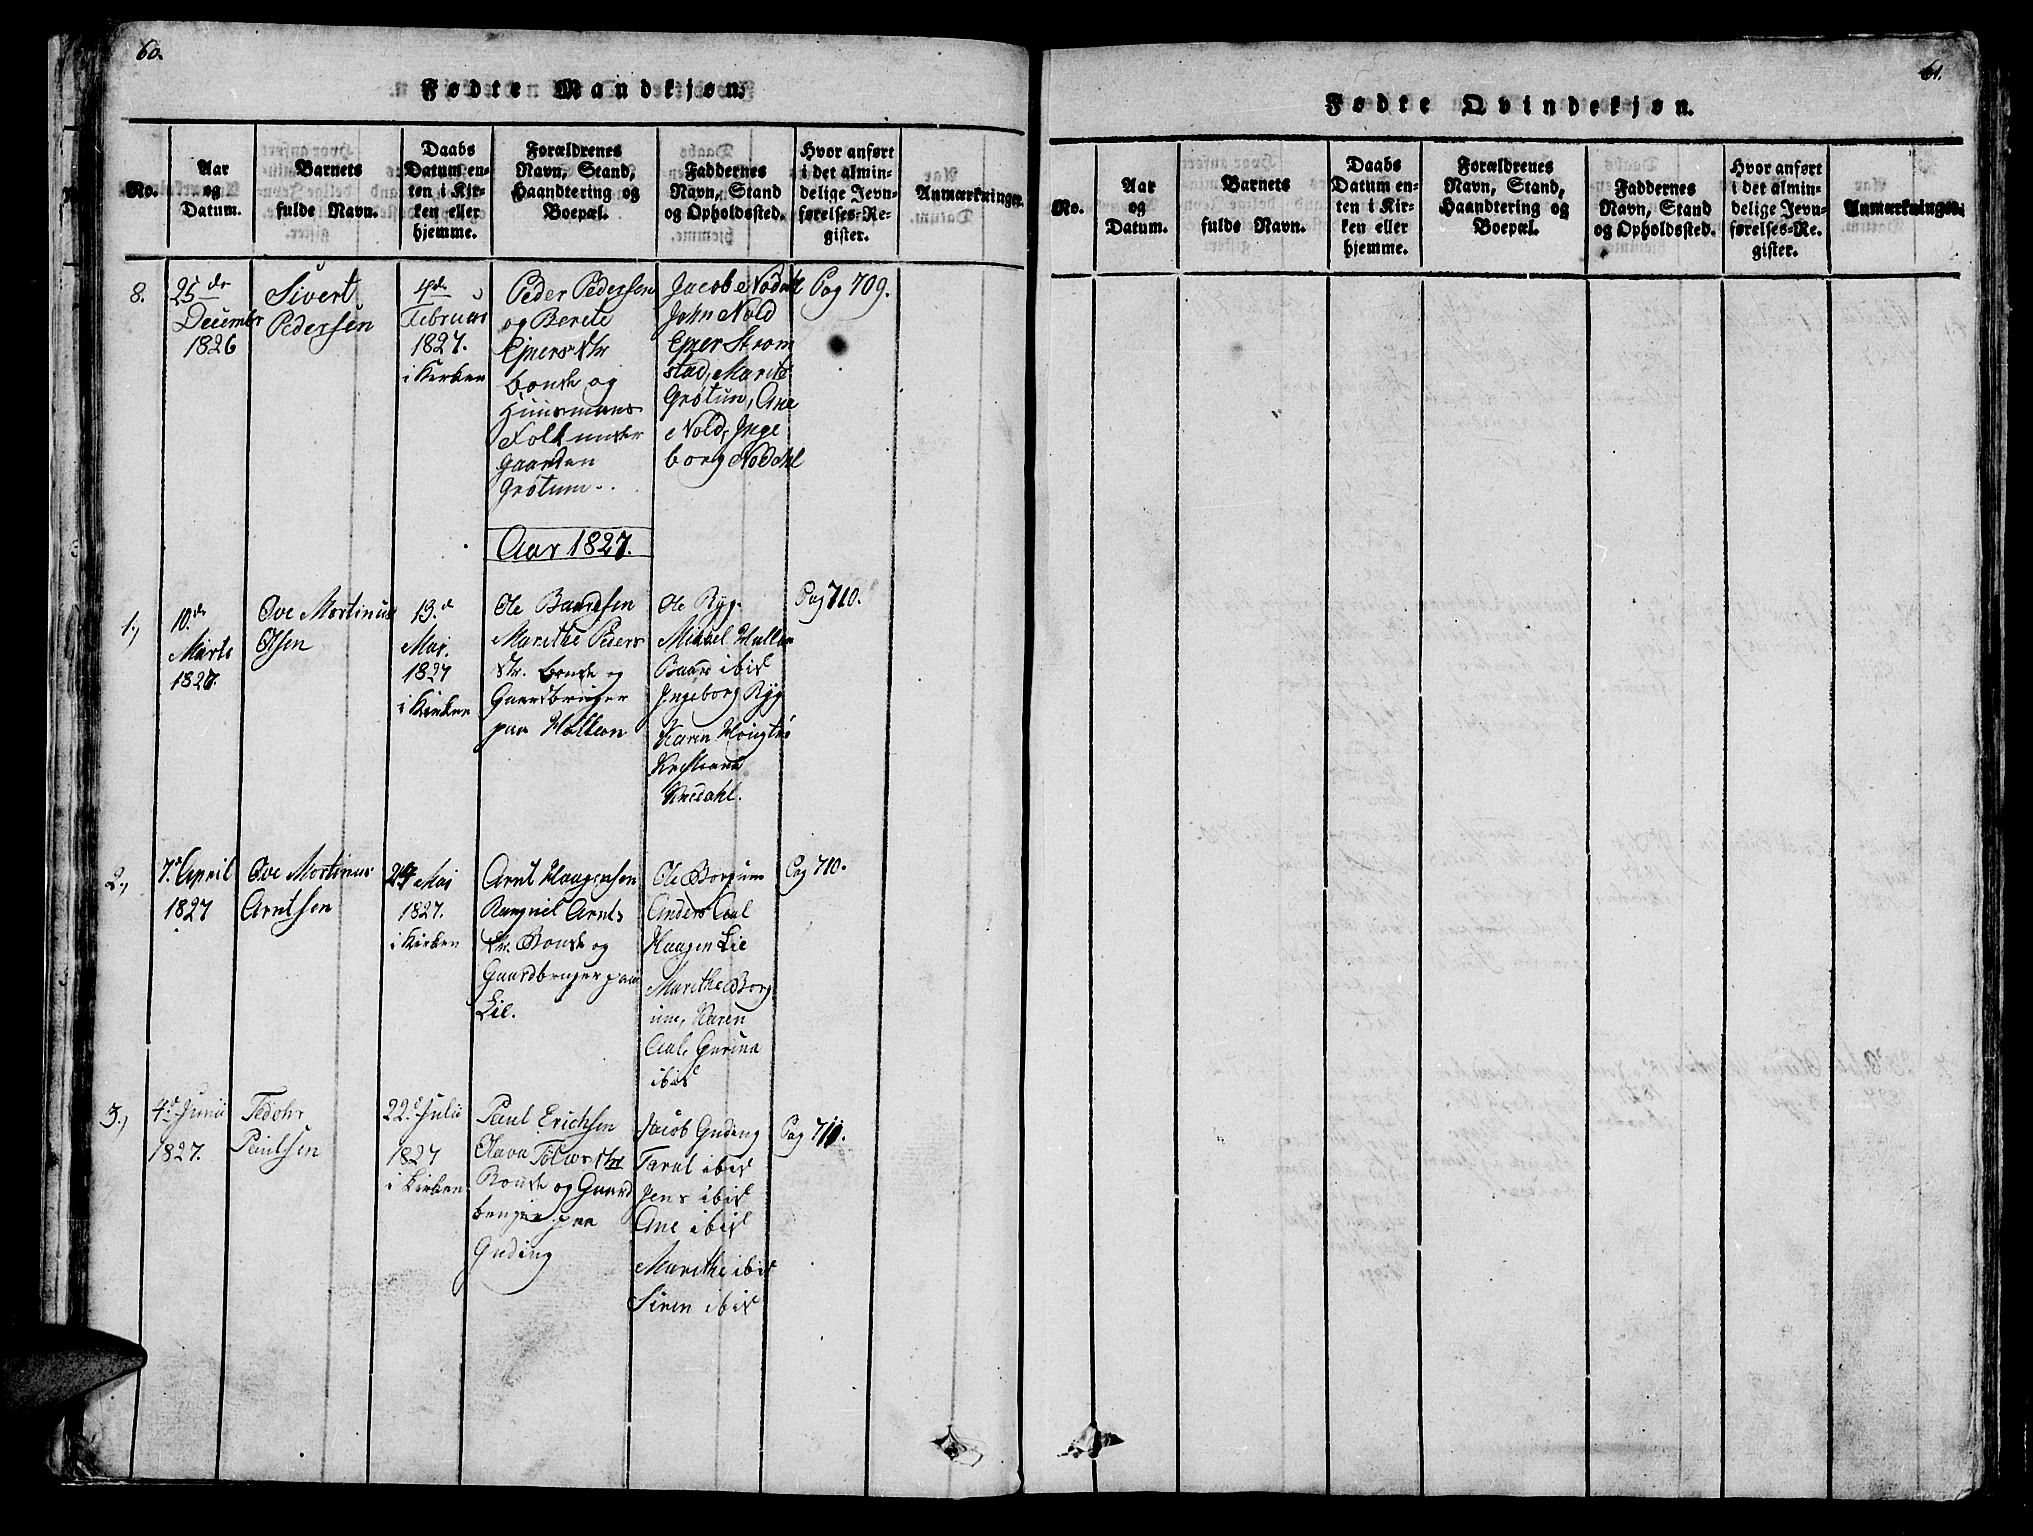 60.
Fødte Mandkjøn.
No.
Aar
og
Datum.
Barnets
fulde Navn.
Daabs
Datum en-
ten i Kir-
ken eller
hjemme.
Forældrenes
Navn, Stand,
Haandtering og
Boepæl.
Faddernes
Navn, Stand
og Opholdssted.
Hvor anført
i det almin-
delige Jevn-
førelses-Re-
gister.
Anmærkninger.
8.
25 de
Decembr
1826
Sivert
Pedersen
4de
Februar
1827.
i Kirken
Peder Pedersen
og Berete
Ejnersdtr
bonde og
Huusmans
Folk under
gaarden
Grøtum.
Jacob Nodahl
John Nold
Ejner Strom
stad, Marit
Grøtum, Ane
Nold, Inge
borg Nodahl
Pag 709.
Aar 1827.
1.,
10.de
Marts
1827.
Ove Mortinus
Olsen
13.d
Mai.
1827
i Kirken
Ole Baardsen
Marithe Peders
dtr. bonde og
Gaardbruger
paa Halten
Ole Ryg.
Mikael Halten
Baard ibid
Ingeborg Ryg
Karen
Pag 710.
2.,
7.d April
1827
Ove Mortinus
Arntsen
24 Mai
1827.
i Kirken
Arnt Haagensen
Ragnil Arnts
dtr. Bonde og
Gaardbruger paa
Lie.
Ole Borgum
Anders Aal
Haagen Lie
Marithe Borg
um, Karen
Aal, Gurina
ibid
Pag 710.
3.,
4.d Junii
1827.
Tedohr
Paulsen
22.d Julii
1827
i Kirken
Paul Erichsen
Olava
Bonde og Gaard
bruger paa
Guding
Jacob Guding
Taral ibid
Jens ibid
Ane ibid
Marithe ibid
Siren ibid
Pag 711.
61.
Fødte Qvindekjøn.
No.
Aar
og
Datum.
Barnets
fulde Navn.
Daabs
Datum en-
ten i Kir-
ken eller
hjemme.
Forældrenes
Navn, Stand,
Haandtering og
Boepæl.
Faddernes
Navn, Stand
og Opholdssted.
Hvor anført
i det almin-
delige Jevn-
førelses-Re-
gister.
Anmærkninger.